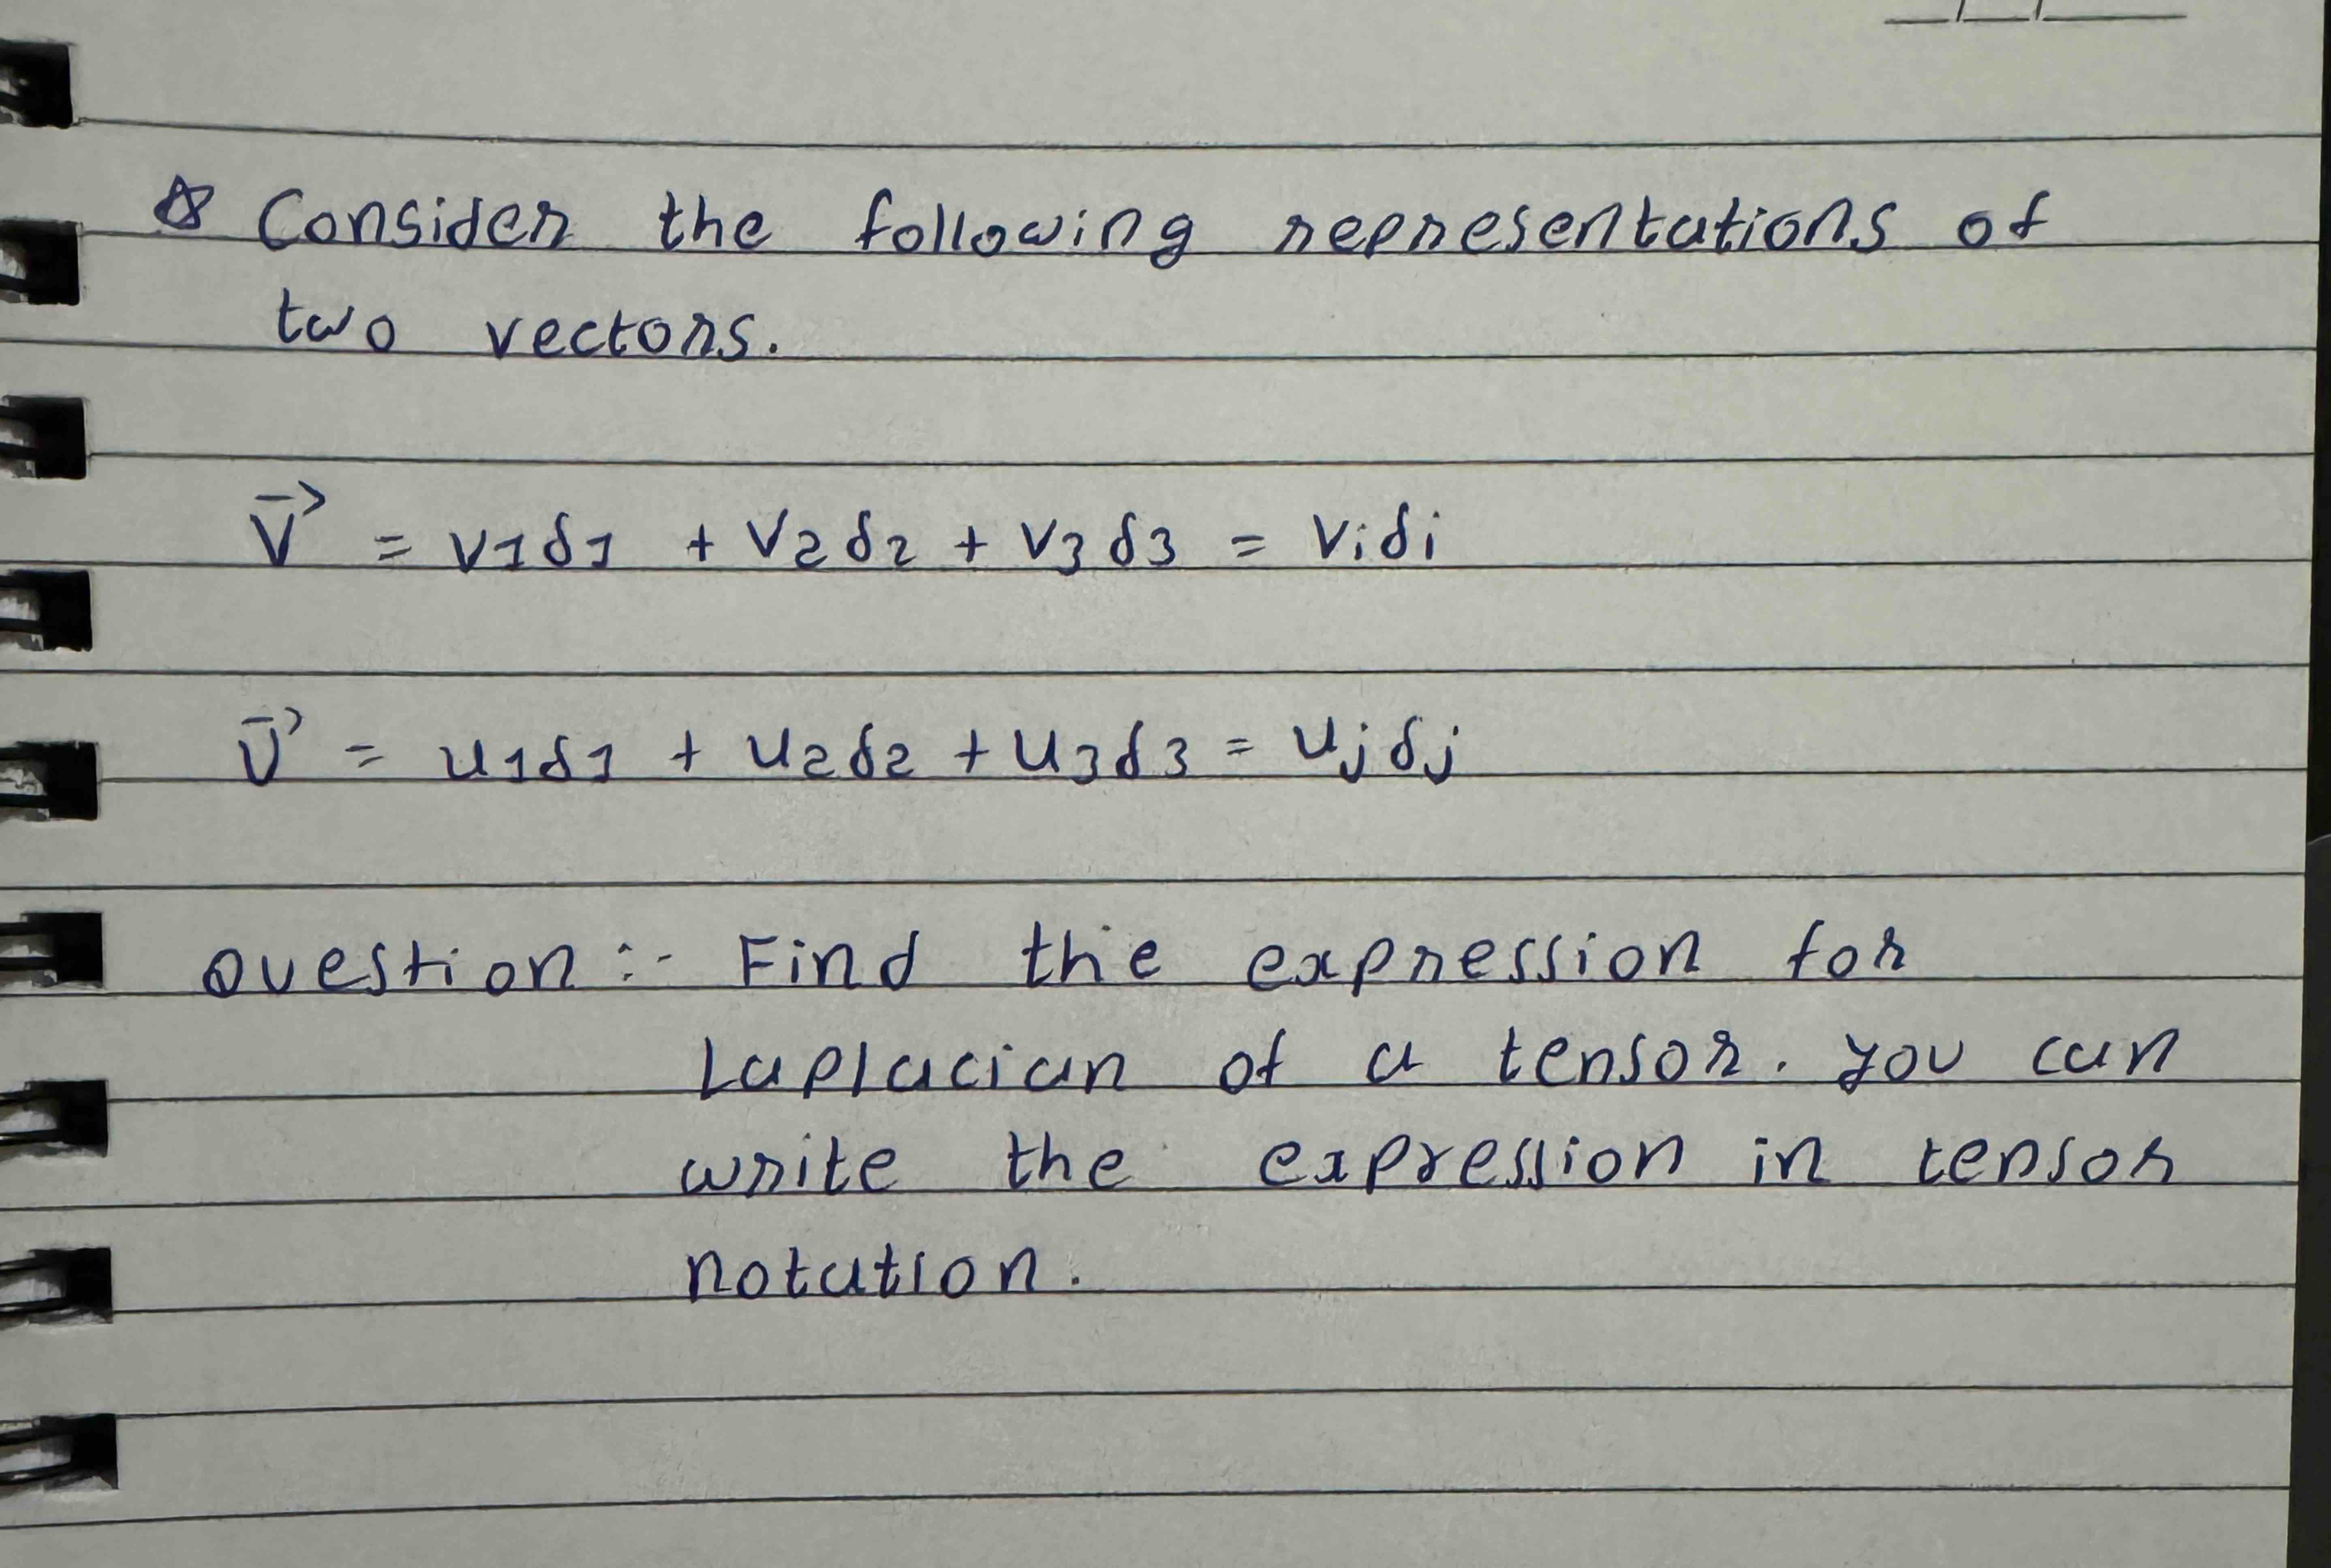 ☆ Consider the following representations of
two vectors.
V⃗ = v₁δ₁ + v₂δ₂ + v₃δ₃ = vᵢδᵢ
U⃗ = u₁δ₁ + u₂δ₂ + u₃δ₃ = uⱼδⱼ
Question :- Find the expression for
Laplacian of a tensor. You can
write the expression in tensor
notation.